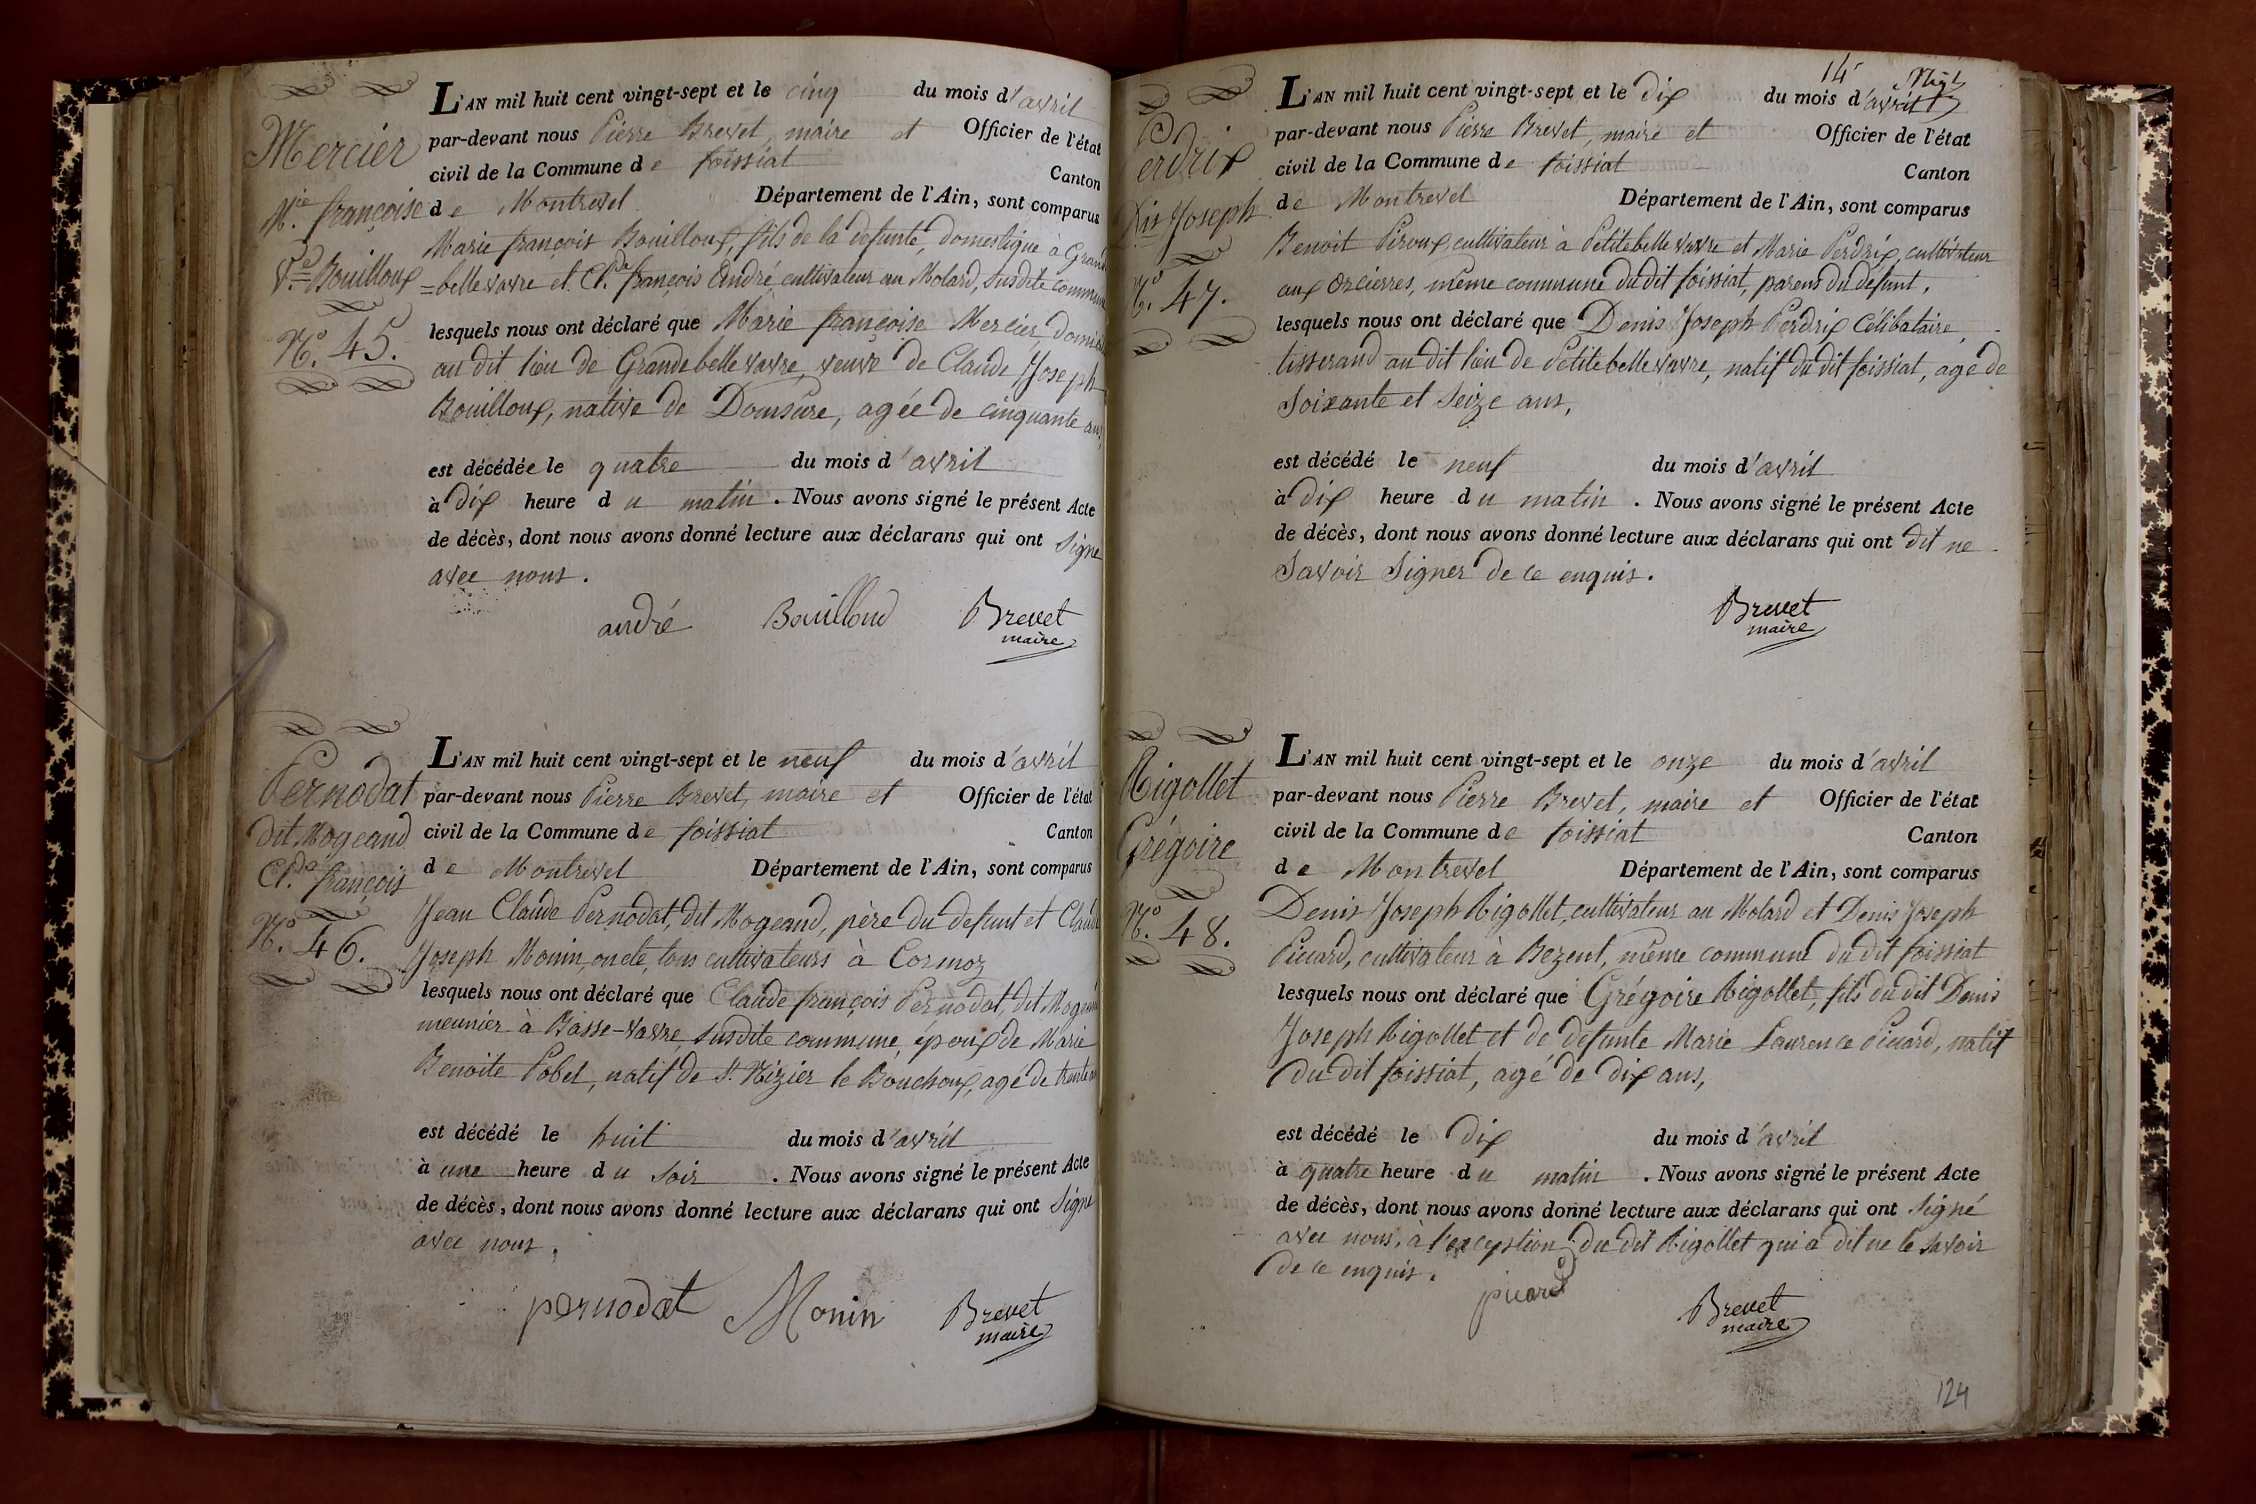 Mercier
M.ie françoise
V.e Bouilloux
N.o 45.
L'AN mil huit cent vingt-sept et le cinq du mois d'avril
par-devant nous Pierre Brevet, maire et Officier de l'état
civil de la Commune de foissiat Canton
de Montrevel Département de l'Ain, sont comparus
Marie françois Bouilloux, fils de la defunte, domestique à Grande
=bellevavre et Cl.de françois André cultivateur au Molard, susdite commune
lesquels nous ont déclaré que Marie françoise Mercier, domiciliée
au dit lieu de Grandebellevavre, veuve de Claude Joseph
Bouilloux, native de Domsure, agée de cinquante ans,
est décédée le quatre du mois d'avril
à dix heure du matin. Nous avons signé le présent Acte
de décès, dont nous avons donné lecture aux déclarans qui ont signé
avec nous.
andré Bouilloud Brevet
maire
Pernodat
dit Mogeand
Cl.de françois
N.o 46.
L'AN mil huit cent vingt-sept et le neuf du mois d'avril
par-devant nous Pierre Brevet, maire et Officier de l'état
civil de la Commune de foissiat Canton
de Montrevel Département de l'Ain, sont comparus
Jean Claude Pernodat, dit Mogeand, père du defunt et Claude
Joseph Monin, oncle, tous cultivateurs à Cormoz
lesquels nous ont déclaré que Claude françois Pernodat, dit Mogeand
meunier à Basse-vavre, susdite commune, époux de Marie
Benoite Pobel, natif de S.t Nizier le Bouchoux, agé de trente ans
est décédé le huit du mois d'avril
à une heure du soir. Nous avons signé le présent Acte
de décès, dont nous avons donné lecture aux déclarans qui ont signé
avec nous.
pernodat Monin Brevet
maire
14
Perdrix
Dis Joseph
N.o 47.
L'AN mil huit cent vingt-sept et le dix du mois d'avril
par-devant nous Pierre Brevet, maire et Officier de l'état
civil de la Commune de foissiat Canton
de Montrevel Département de l'Ain, sont comparus
Benoit Piroux, cultivateur à Petitebellevavre et Marie Perdrix, cultivateur
aux Orcierres, même commune du dit foissiat, parens du defunt,
lesquels nous ont déclaré que Denis Joseph Perdrix Célibataire,
tisserand au dit lieu de Petitebellevavre, natif du dit foissiat, agé de
soixante et seize ans,
est décédé le neuf du mois d'avril
à dix heure du matin. Nous avons signé le présent Acte
de décès, dont nous avons donné lecture aux déclarans qui ont dit ne
savoir signer de ce enquis.
Brevet
maire
Rigollet
Grégoire
N.o 48.
L'AN mil huit cent vingt-sept et le onze du mois d'avril
par-devant nous Pierre Brevet, maire et Officier de l'état
civil de la Commune de foissiat Canton
de Montrevel Département de l'Ain, sont comparus
Denis Joseph Rigollet, cultivateur au Molard et Denis Joseph
Picard, cultivateur à Bezent, même commune du dit foissiat
lesquels nous ont déclaré que Grégoire Rigollet, fils du dit Denis
Joseph Rigollet et de defunte Marie Laurence Picard, natif
du dit foissiat, agé de dix ans,
est décédé le dix du mois d'avril
à quatre heure du matin. Nous avons signé le présent Acte
de décès, dont nous avons donné lecture aux déclarans qui ont signé
avec nous, à l'exception du dit Rigollet qui a dit ne le savoir
de ce enquis.
picard
Brevet
maire
124